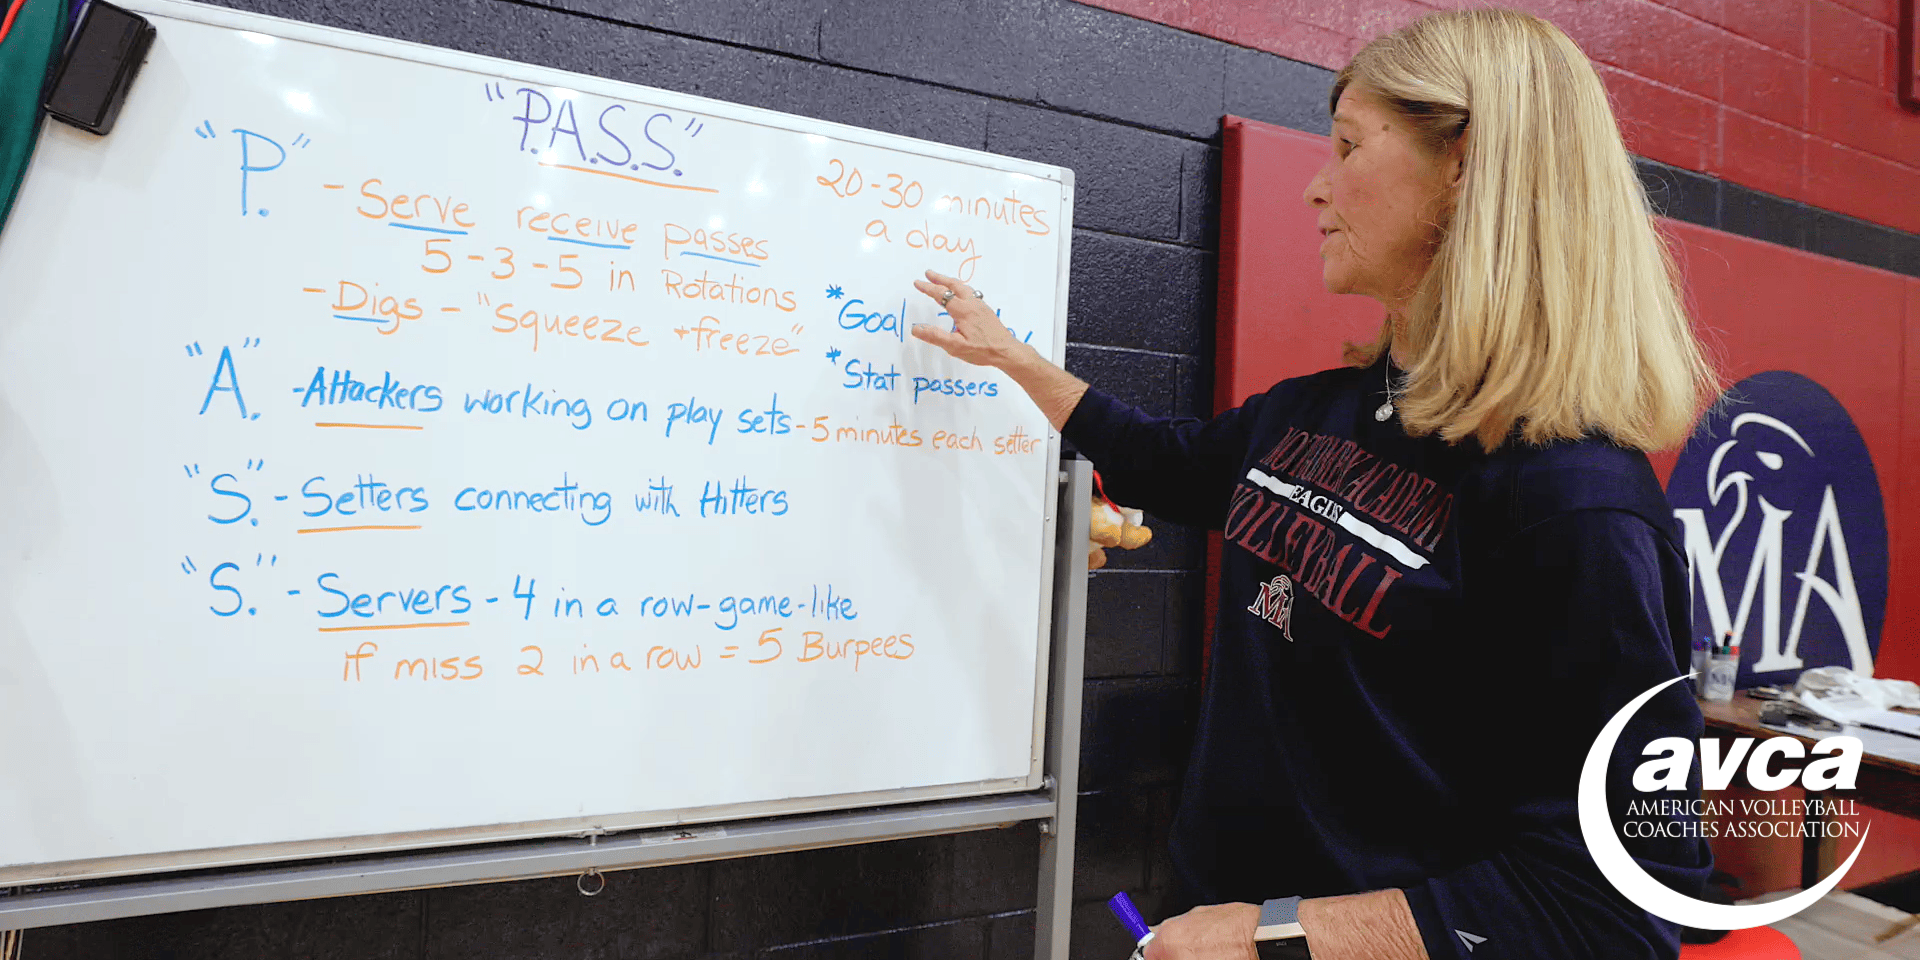 "P.A.S.S."
20-30 minutes
a day
"P." - Serve receive passes
5-3-5 in Rotations
- Digs - "squeeze + freeze"
*Goal -
*Stat passers
"A." - Attackers working on play sets - 5 minutes each setter
"S." - Setters connecting with Hitters
"S." - Servers - 4 in a row - game-like
if miss 2 in a row = 5 Burpees
EAGLES
VOLLEYBALL
MA
MA
avca
AMERICAN VOLLEYBALL
COACHES ASSOCIATION